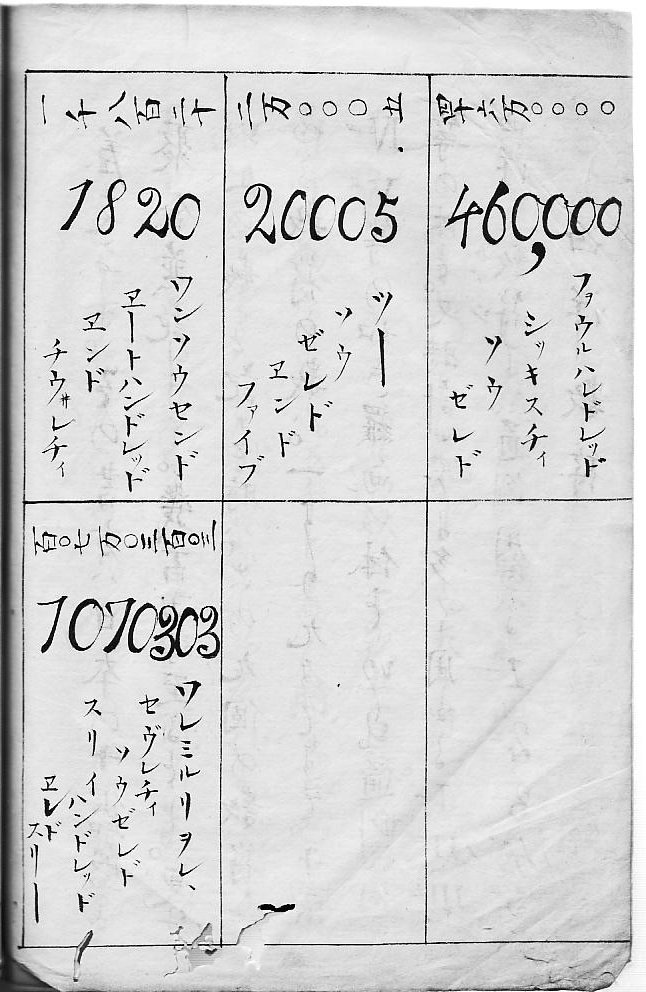 四十六万〇〇〇〇
460,000
ファウルハレドレッド
シッキスチィ
ソウ
ゼレド
二万〇〇〇五
20005
ツー
ソウ
ゼレド
ヱンド
ファイブ
一千八百二十
1820
ワンソウセンド
ヱートハンドレッド
ヱンド
チウヰレチィ
百〇七万〇三百〇三
1070303
ワレミルリヲレ、
セヴレチィ
ソウゼレド
スリイ
ハンドレッド
ヱレド
スリー